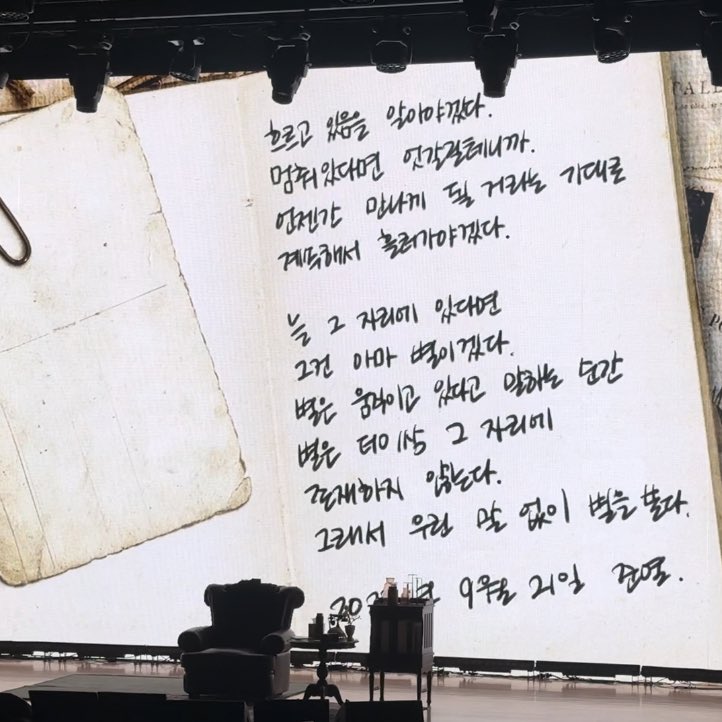 흐르고 있음을 알아야겠다.
멈춰있다면 엇갈릴테니까.
언젠간 만나게 될 거라는 기대로
계속해서 흘러가야겠다.
늘 그 자리에 있다면
그건 아마 별이겠다.
별은 움직이고 있다고 말하는 순간
별은 더이상 그 자리에
존재하지 않는다.
그래서 우린 말 없이 별을 본다.
9월 21일 준열.
TALL